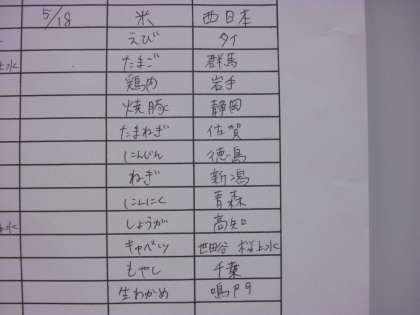 5/18 米 西日本
えび タイ
上水 たまご 群馬
鶏肉 岩手
焼豚 静岡
たまねぎ 佐賀
にんじん 徳島
ねぎ 新潟
にんにく 青森
上水 しょうが 高知
キャベツ 世田谷 桜上水
もやし 千葉
生わかめ 鳴門